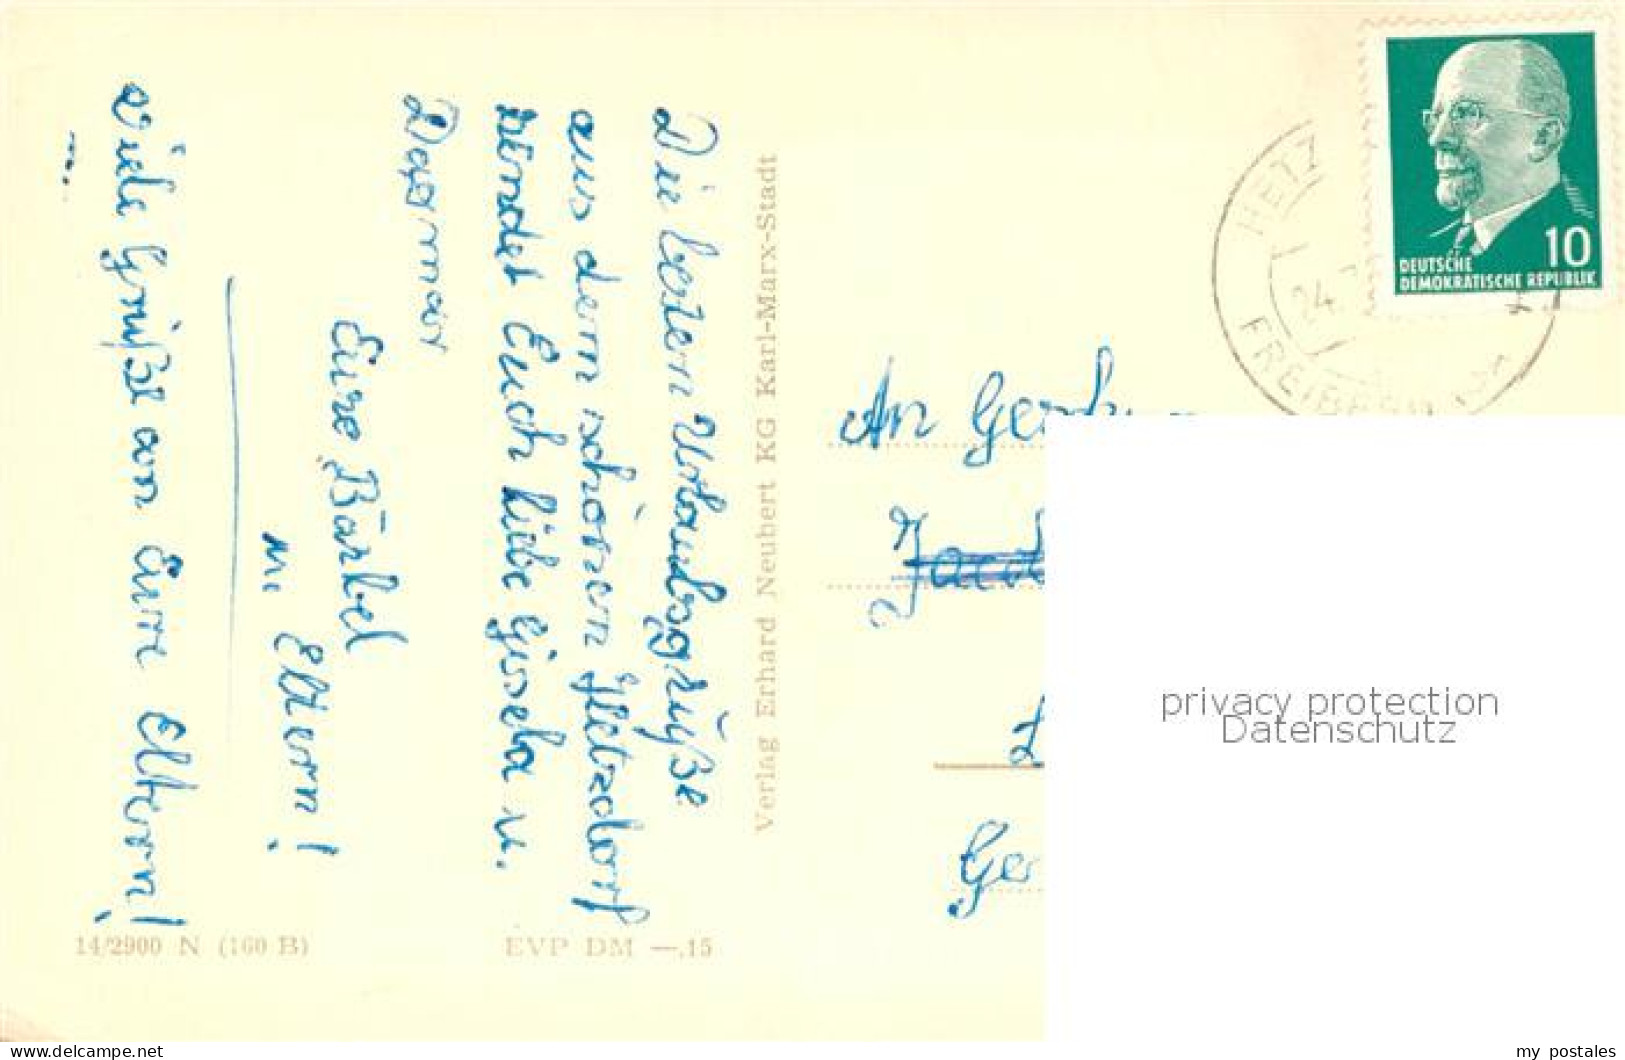 Die besten Urlaubsgrüße
aus dem schönen Hetzdorf
sendet Euch liebe Gissela u.
Dagmar
Eure Bärbel
u. Eltern!
Viele Grüße von Eurn Eltern!
Verlag Erhard Neubert KG Karl-Marx-Stadt
14/2900 N (160 B)
EVP DM —,15
10
DEUTSCHE
DEMOKRATISCHE REPUBLIK
HETZ
24.
FREIBERG
An
Ger
privacy protection
Datenschutz
www.delcampe.net
my postales